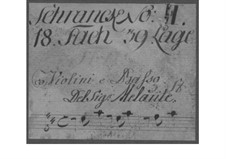 Schranck No: II.
18. Fach 39 Lage
Violini e Basso
Del Sigr Melante.